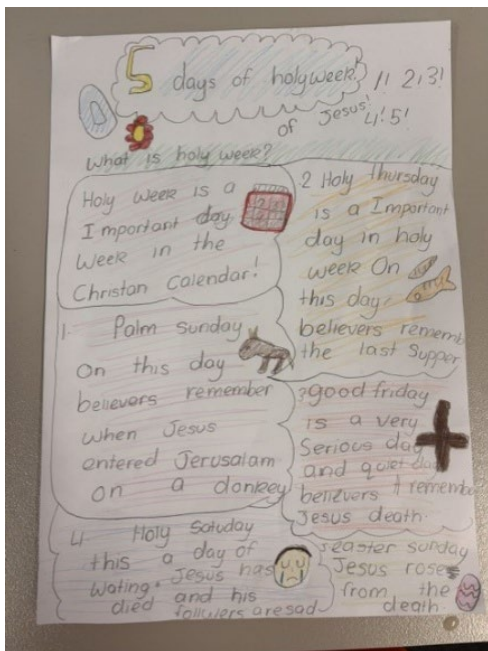 5 days of holyweek! 1! 2! 3!
of Jesus! 4! 5!
What is holy week?
Holy Week is a
Important day
Week in the
Christan Calendar!
1. Palm Sunday
on this day
believers remember
when Jesus
entered Jerusalam
on a donkey
2 Holy Thursday
is a Important
day in holy
week On
this day
believers rememb
the last Supper
3 good friday
is a very
Serious day
and quiet day
believers remember
Jesus death.
4 Holy Satuday
this a day of
wating. Jesus has
died and his
follwers are sad
5 easter sunday
Jesus rose
from the
death.